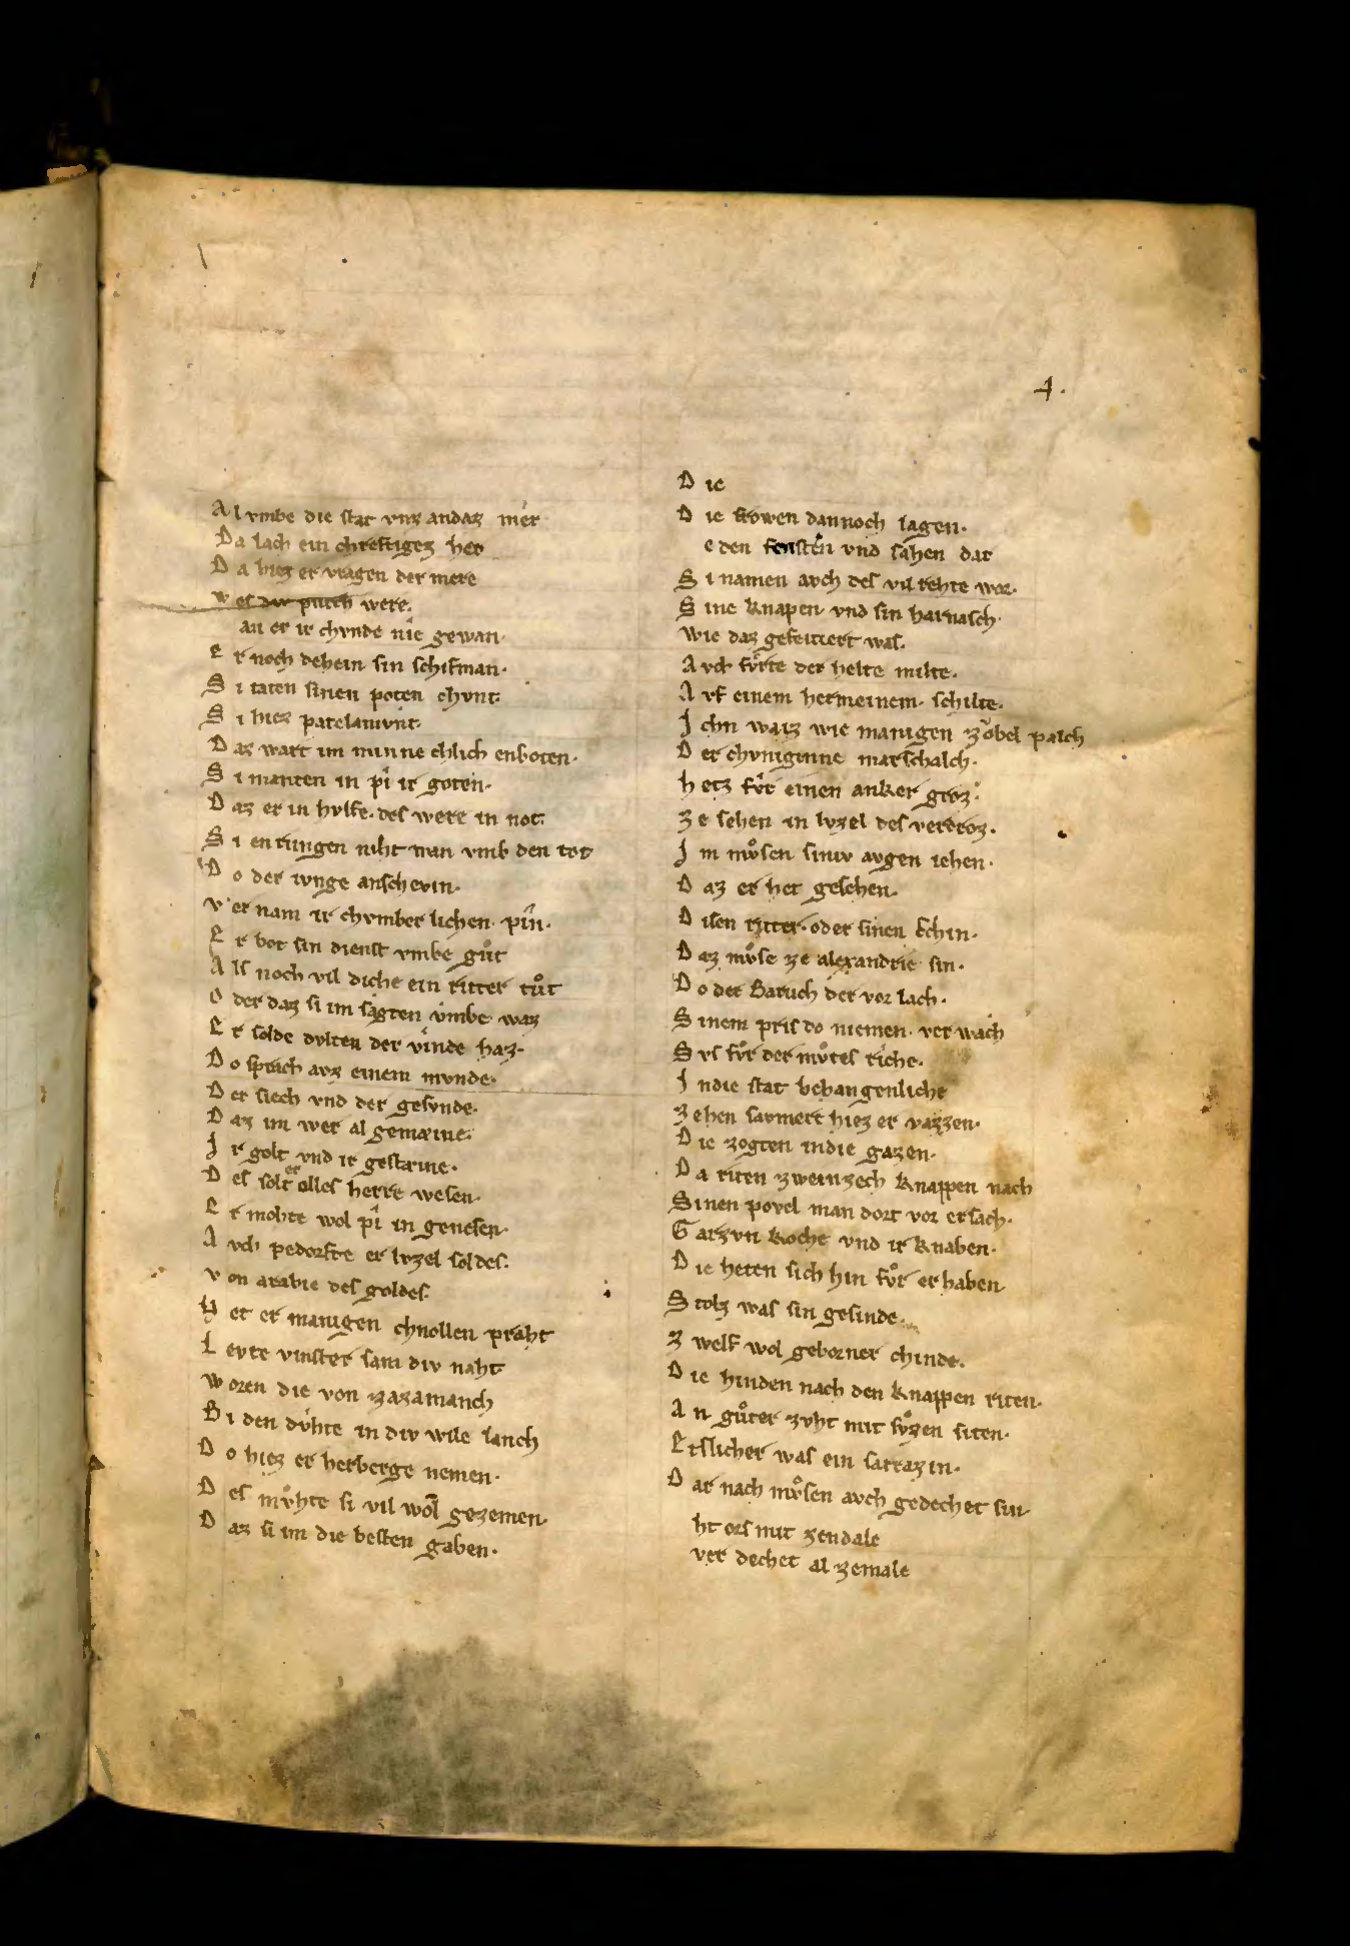 4.
Al vmbe die stat vnz andaz mer
Da lach ein chreftigez her
Da hiez er vragen der mere
wes div purch were.
an er ir chvnde nie gewan.
er noch dehein sin schifman.
Si taten sinen poten chvnt.
Si hiez patelamvnt.
Daz wart im minne chlich enboten.
Si manten in pi ir goten.
Daz er in hvlfe. des were in not.
Si en rungen niht wan vmb den tot
Do der ivnge anschevin.
v er nam ir chvmber lichen. pin.
Er bot sin dienst vmbe gůt
Als noch vil diche ein ritter tůt
oder daz si im sagten vmbe waz
Er solde dvlten der vinde haz.
Do sprach avz einem mvnde.
Der siech vnd der gesvnde.
Daz im wer al gemæine.
Ir golt vnd ir gestæine.
Des solt er alles herre wesen.
Er mohte wol pi in genesen.
Avch pedorfte er lvzel soldes.
von arabie des goldes.
Het er manigen chnollen praht
Levte vinster sam div naht
woren die von zazamanch
Bi den dvhte in div wile lanch
Do hiez er herberge nemen.
Des mvhte si vil wol gezemen.
Daz si im die besten gaben.
Die
Die frowen dannoch lagen.
e den fensten vnd sahen dar
Si namen avch des vil rehte war.
Sine knapen. vnd sin harnasch.
wie daz gefeitiert was.
Avch fvrte der helte milte.
Avf einem hermeinem. schilte.
Ichn waiz wie manigen zobel palch
Der chvniginne marschalch.
hetz fvr einen anker groz.
ze sehen in lvzel des verdroz.
Im mvsen siniv avgen iehen.
Daz er het gesehen.
Disen ritter. oder sinen schin.
Daz mvse ze alexandrie sin.
Do der Baruch der vor lach.
Sinem pris do niemen. ver wach
Svs fvr der mvtes riche.
Indie stat behangenliche
zehen savmert hiez er vazzen.
Die zogten indie gazen.
Da riten zweinzech knappen nach
Sinen povel man dort vor ersach.
Garzvn koche vnd ir knaben.
Die heten sich hin fvr erhaben.
Stolz was sin gesinde.
zwelf wol geborner chinde.
Die hinden nach den knappen riten.
An gůter zvht mit svzen siten.
Etslicher was ein sarrazin.
Dar nach mvsen avch gedechet sin.
ht ors mit zendale
ver dechet al zemale